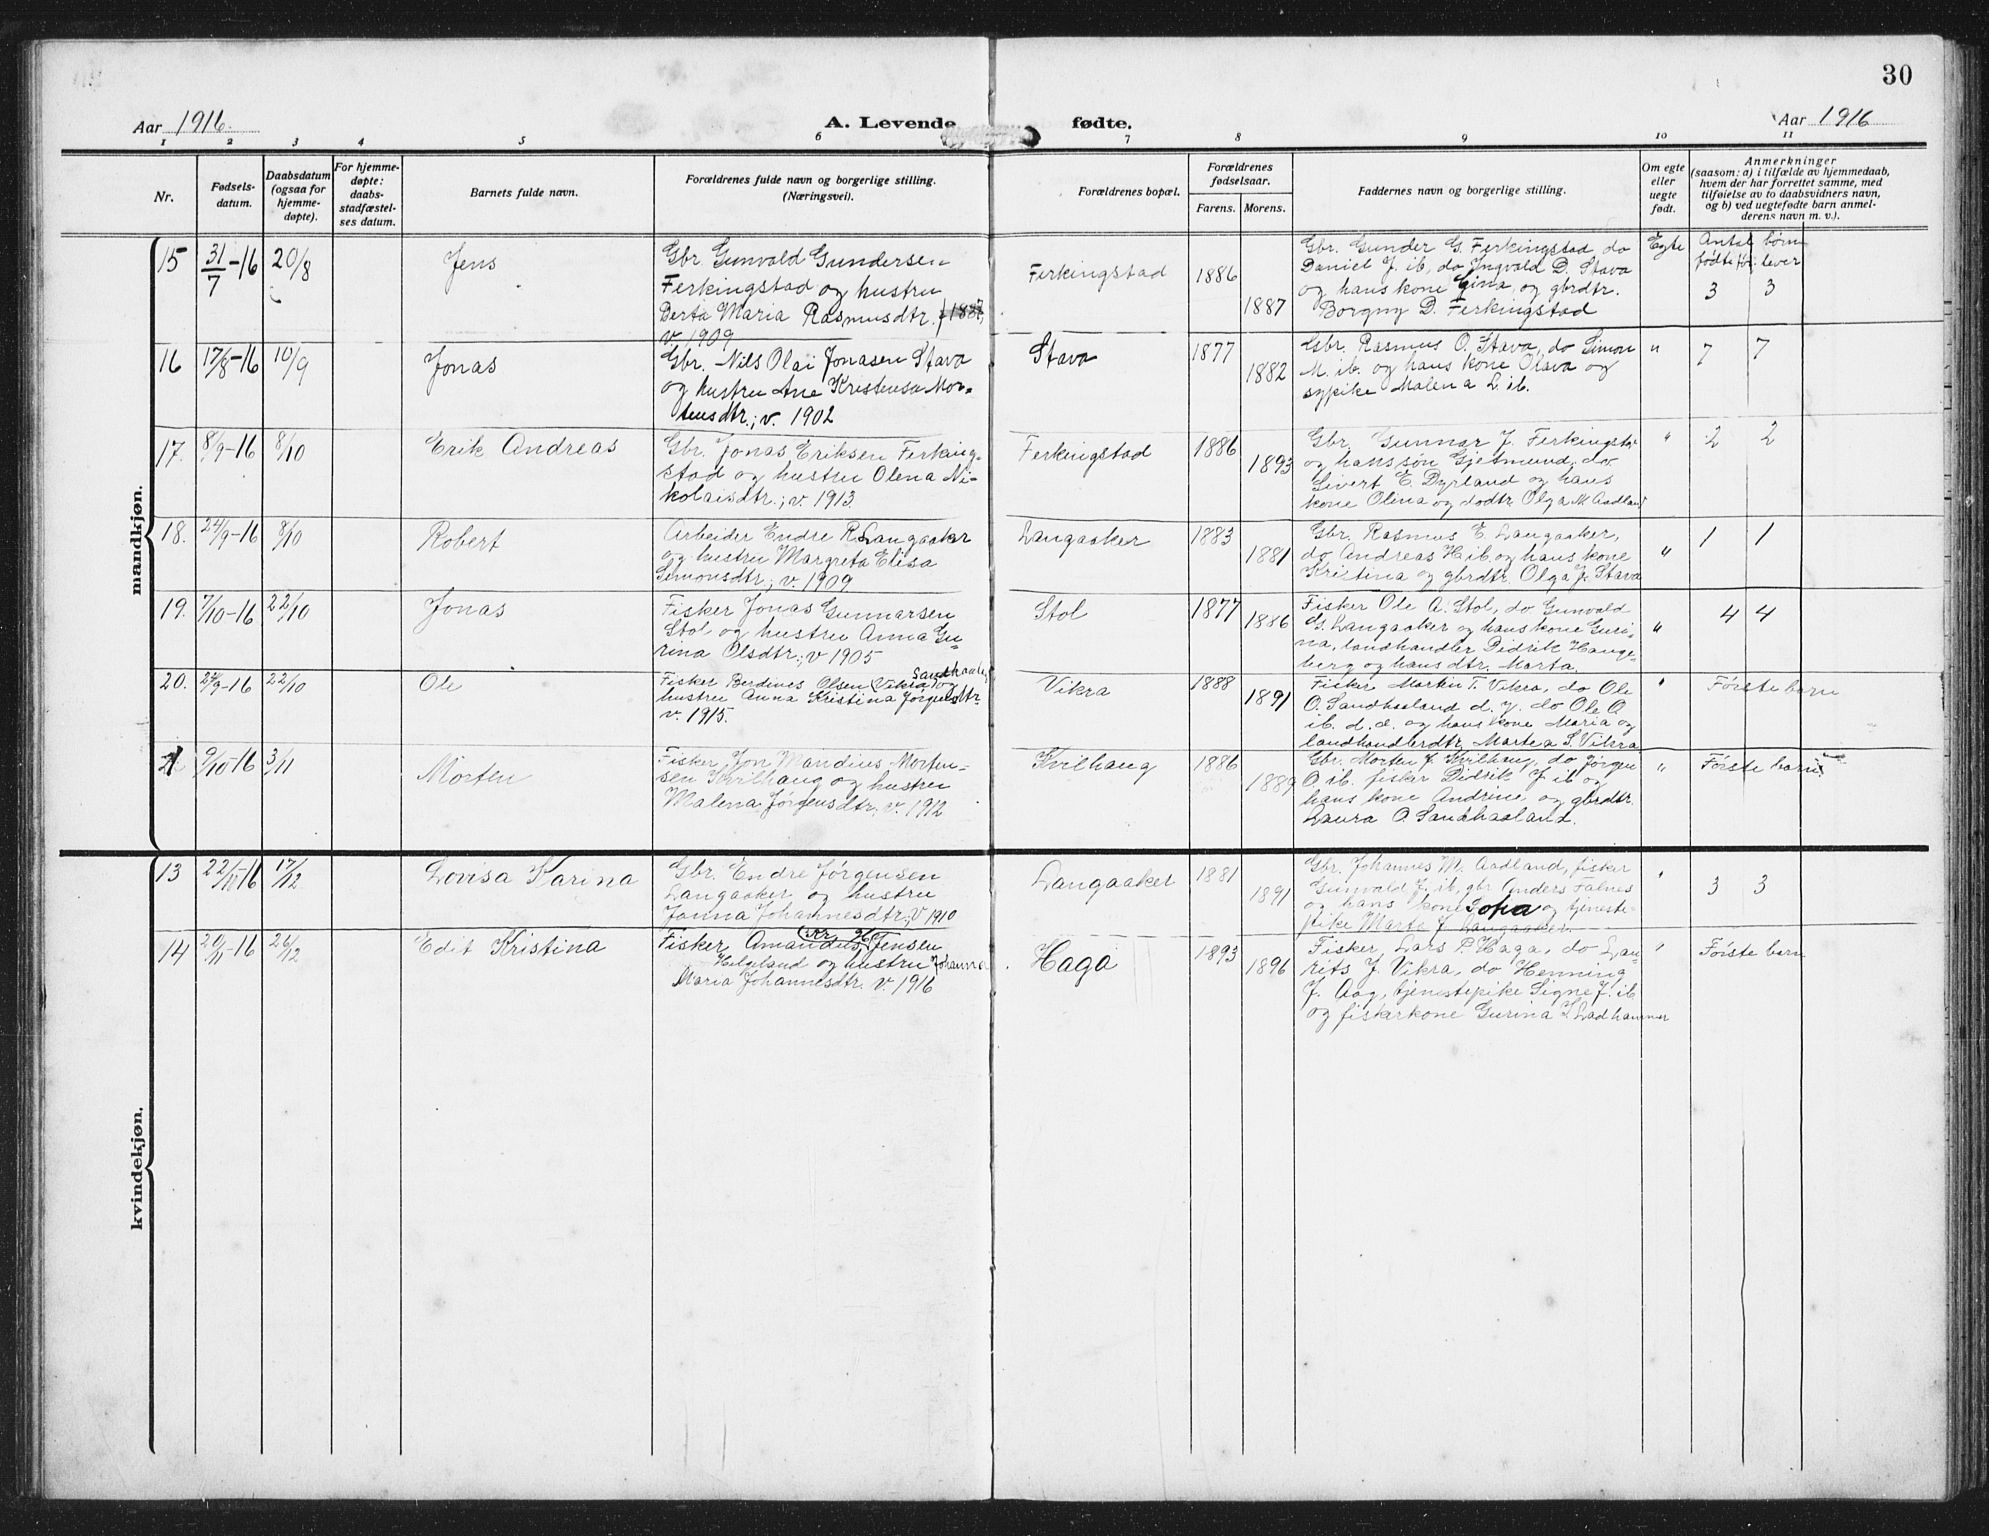 30
Aar 1916
A. Levende
fødte.
Aar 1916
1 2 3 4 5 6 7 8 9 10 11
Nr.
Fødsels-
datum.
Daabsdatum
(ogsaa for
hjemme-
døpte).
For hjemme-
døpte:
daabs-
stadfæstel-
ses datum.
Barnets fulde navn.
Forældrenes fulde navn og borgerlige stilling.
(Næringsvei).
Forældrenes bopæl.
Forældrenes
fødselsaar.
Farens. Morens.
Faddernes navn og borgerlige stilling.
Om egte
eller
uegte
født.
Anmerkninger
(saasom: a) i tilfælde av hjemmedaab,
hvem der har forrettet samme, med
tilføielse av to daabsvidners navn,
og b) ved uegtefødte barn anmel-
derens navn m. v.).
mandkjøn.
15 31/7-16 20/8 Jens
Gbr. Gunvald Gundersen
Ferkingstad og hustru
Berta Maria Rasmusdtr. f 1887,
v. 1909
Ferkingstad 1886 1887
Gbr. Gunder G. Ferkingstad do
Daniel J. ib, do Ingvald D. Stava
og hans kone Gina, og gbrdtr.
Borgny D. Ferkingstad
Egte
Antal børn
fødte før lever
3 3
16 17/8-16 10/9 Jonas
Gbr. Nils Olai Jonasen Stava
og hustru Ane Kristensa Mor-
tensdtr.; v. 1902
Stava 1877 1882
Gbr. Rasmus O. Stava, do Simon
M. ib. og hans kone Olava og
sypike Malena L. ib.
" 7 7
17. 8/9-16 8/10 Erik Andreas
Gbr. Jonas Eriksen Ferking-
stad og hustru Olena Ni-
kolaisdtr.; v. 1913
Ferkingstad 1886 1893
Gbr. Gunnar J. Ferkingst.
og hans søn Gjetmund, do
Sivert E. Dyrland og hans
kone Olina og dodtr Olga M. Aadland
" 2 2
18. 24/9-16 8/10 Robert
Arbeider Endre R. Langaaker
og hustru Margreta Elisa
Simonsdtr; v. 1909
Langaaker 1883 1881
Gbr. Rasmus E. Langaaker,
do Andreas H ib. og hans kone
Kristina og gbrdtr. Olga J. Stava
" 1 1
19. 7/10-16 22/10 Jonas
Fisker Jonas Gunnarsen
Stol og hustru Anna Gu-
rina Olsdtr.; v 1905
Stol 1877 1886
Fisker Ole A. Stol, do Gunvald
G. Langaaker og hans kone Guri-
na, landhandler Didrik Hauge-
berg og hans dtr. Marta
" 4 4
20. 24/9-16 22/10 Ole
Fisker Berdines Olsen (Vikra) og
hustru Anna Kristina Jørgensdtr
v. 1915.
Vikra 1888 1891
Fisker Martin T. Vikra, do Ole
O. Sandhaaland d. y. do Ole O.
ib. d. æ. og hans kone Maria og
landhandlerdtr. Martea S. Vikra
" Første barn
21 9/10-16 3/11 Morten
Fisker Jon Mandius Morten-
sen Kvilhaug og hustru
Malena Jørgensdtr, v. 1912
Kvilhaug 1886 1889
Gbr. Morten J. Kvilhaug, do Jørgen
O. ib. fisker Didrik J. ib og
hans kone Andrine og gbrdtr.
Laura O. Sandhaaland.
" Første barn
kvindekjøn.
13 22/11-16 17/12 Lovisa Karina
Gbr. Endre Jørgensen
Langaaker og hustru
Janna Johannesdtr; v 1910
Langaaker 1881 1891
Gbr. Johannes M. Aadland, fisker
Gunvald J. ib, gbr Anders Falnes
og hans kone Sofia og tjeneste-
pike Marta J. Langaaker.
" 3 3
14 20/11-16 26/12 Edit Kristina
Fisker Amandus Jensen
Helgeland og hustru Johanna
Maria Johannesdtr. v. 1916
Haga 1893 1896
Fisker Lars P. Haga, do Lau-
rits J. Vikra, do Henning
J. Aag, tjenestepike Signe J. ib
og fiskerkone Gurina L Ladhammer
" Første barn